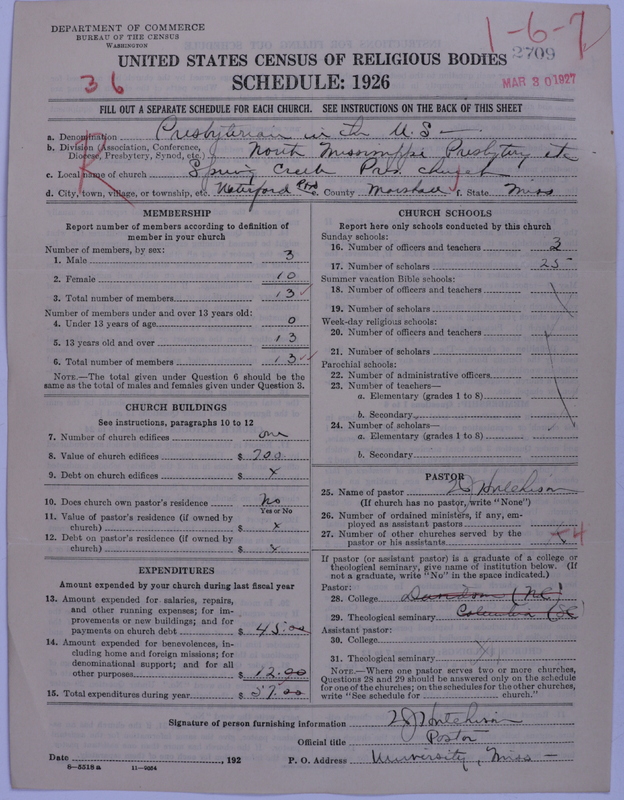 DEPARTMENT OF COMMERCE
BUREAU OF THE CENSUS
WASHINGTON
1-6-7
2709
UNITED STATES CENSUS OF RELIGIOUS BODIES
36
SCHEDULE: 1926
MAR 30 1927
FILL OUT A SEPARATE SCHEDULE FOR EACH CHURCH. SEE INSTRUCTIONS ON THE BACK OF THIS SHEET
a. Denomination Presbyterian in the U.S
b. Division (Association, Conference, Diocese, Presbytery, Synod, etc.) North Mississippi Presbytery etc
c. Local name of church Spring Creek Pres. Church
d. City, town, village, or township, etc. e. County Marshall f. State Miss
MEMBERSHIP
Report number of members according to definition of
member in your church
Number of members, by sex:
1. Male 3
2. Female 10
3. Total number of members 13
Number of members under and over 13 years old:
4. Under 13 years of age 0
5. 13 years old and over 13
6. Total number of members 13
NOTE.—The total given under Question 6 should be
same as the total of males and females given under Question 3.
CHURCH BUILDINGS
See instructions, paragraphs 10 to 12
7. Number of church edifices one
8. Value of church edifices $ 700
9. Debt on church edifices $ x
10. Does church own pastor's residence No
Yes or No
11. Value of pastor's residence (if owned by
church) $ x
12. Debt on pastor's residence (if owned by
church) $ x
EXPENDITURES
Amount expended by your church during last fiscal year
13. Amount expended for salaries, repairs,
and other running expenses; for im-
provements or new buildings; and for
payments on church debt $ 45.00
14. Amount expended for benevolences, in-
cluding home and foreign missions; for
denominational support; and for all
other purposes $ 12.00
15. Total expenditures during year $ 57.00
CHURCH SCHOOLS
Report here only schools conducted by this church
Sunday schools:
16. Number of officers and teachers 3
17. Number of scholars 25
Summer vacation Bible schools:
18. Number of officers and teachers
19. Number of scholars
Week-day religious schools:
20. Number of officers and teachers
21. Number of scholars
Parochial schools:
22. Number of administrative officers
23. Number of teachers—
a. Elementary (grades 1 to 8)
b. Secondary
24. Number of scholars—
a. Elementary (grades 1 to 8)
b. Secondary
PASTOR
25. Name of pastor Hutchison
(If church has no pastor, write "None")
26. Number of ordained ministers, if any, em-
ployed as assistant pastors
27. Number of other churches served by the
pastor or his assistants 4
If pastor (or assistant pastor) is a graduate of a college or
theological seminary, give name of institution below. (If
not a graduate, write "No" in the space indicated.)
Pastor:
28. College (NC)
29. Theological seminary Columbia (SC)
Assistant pastor:
30. College
31. Theological seminary
NOTE.—Where one pastor serves two or more churches,
Questions 28 and 29 should be answered only on the schedule
for one of the churches; on the schedules for the other churches,
write "See schedule for church."
Signature of person furnishing information Hutchison
Official title Pastor
Date , 192 P. O. Address University, Miss
8—5518 a 11—9064